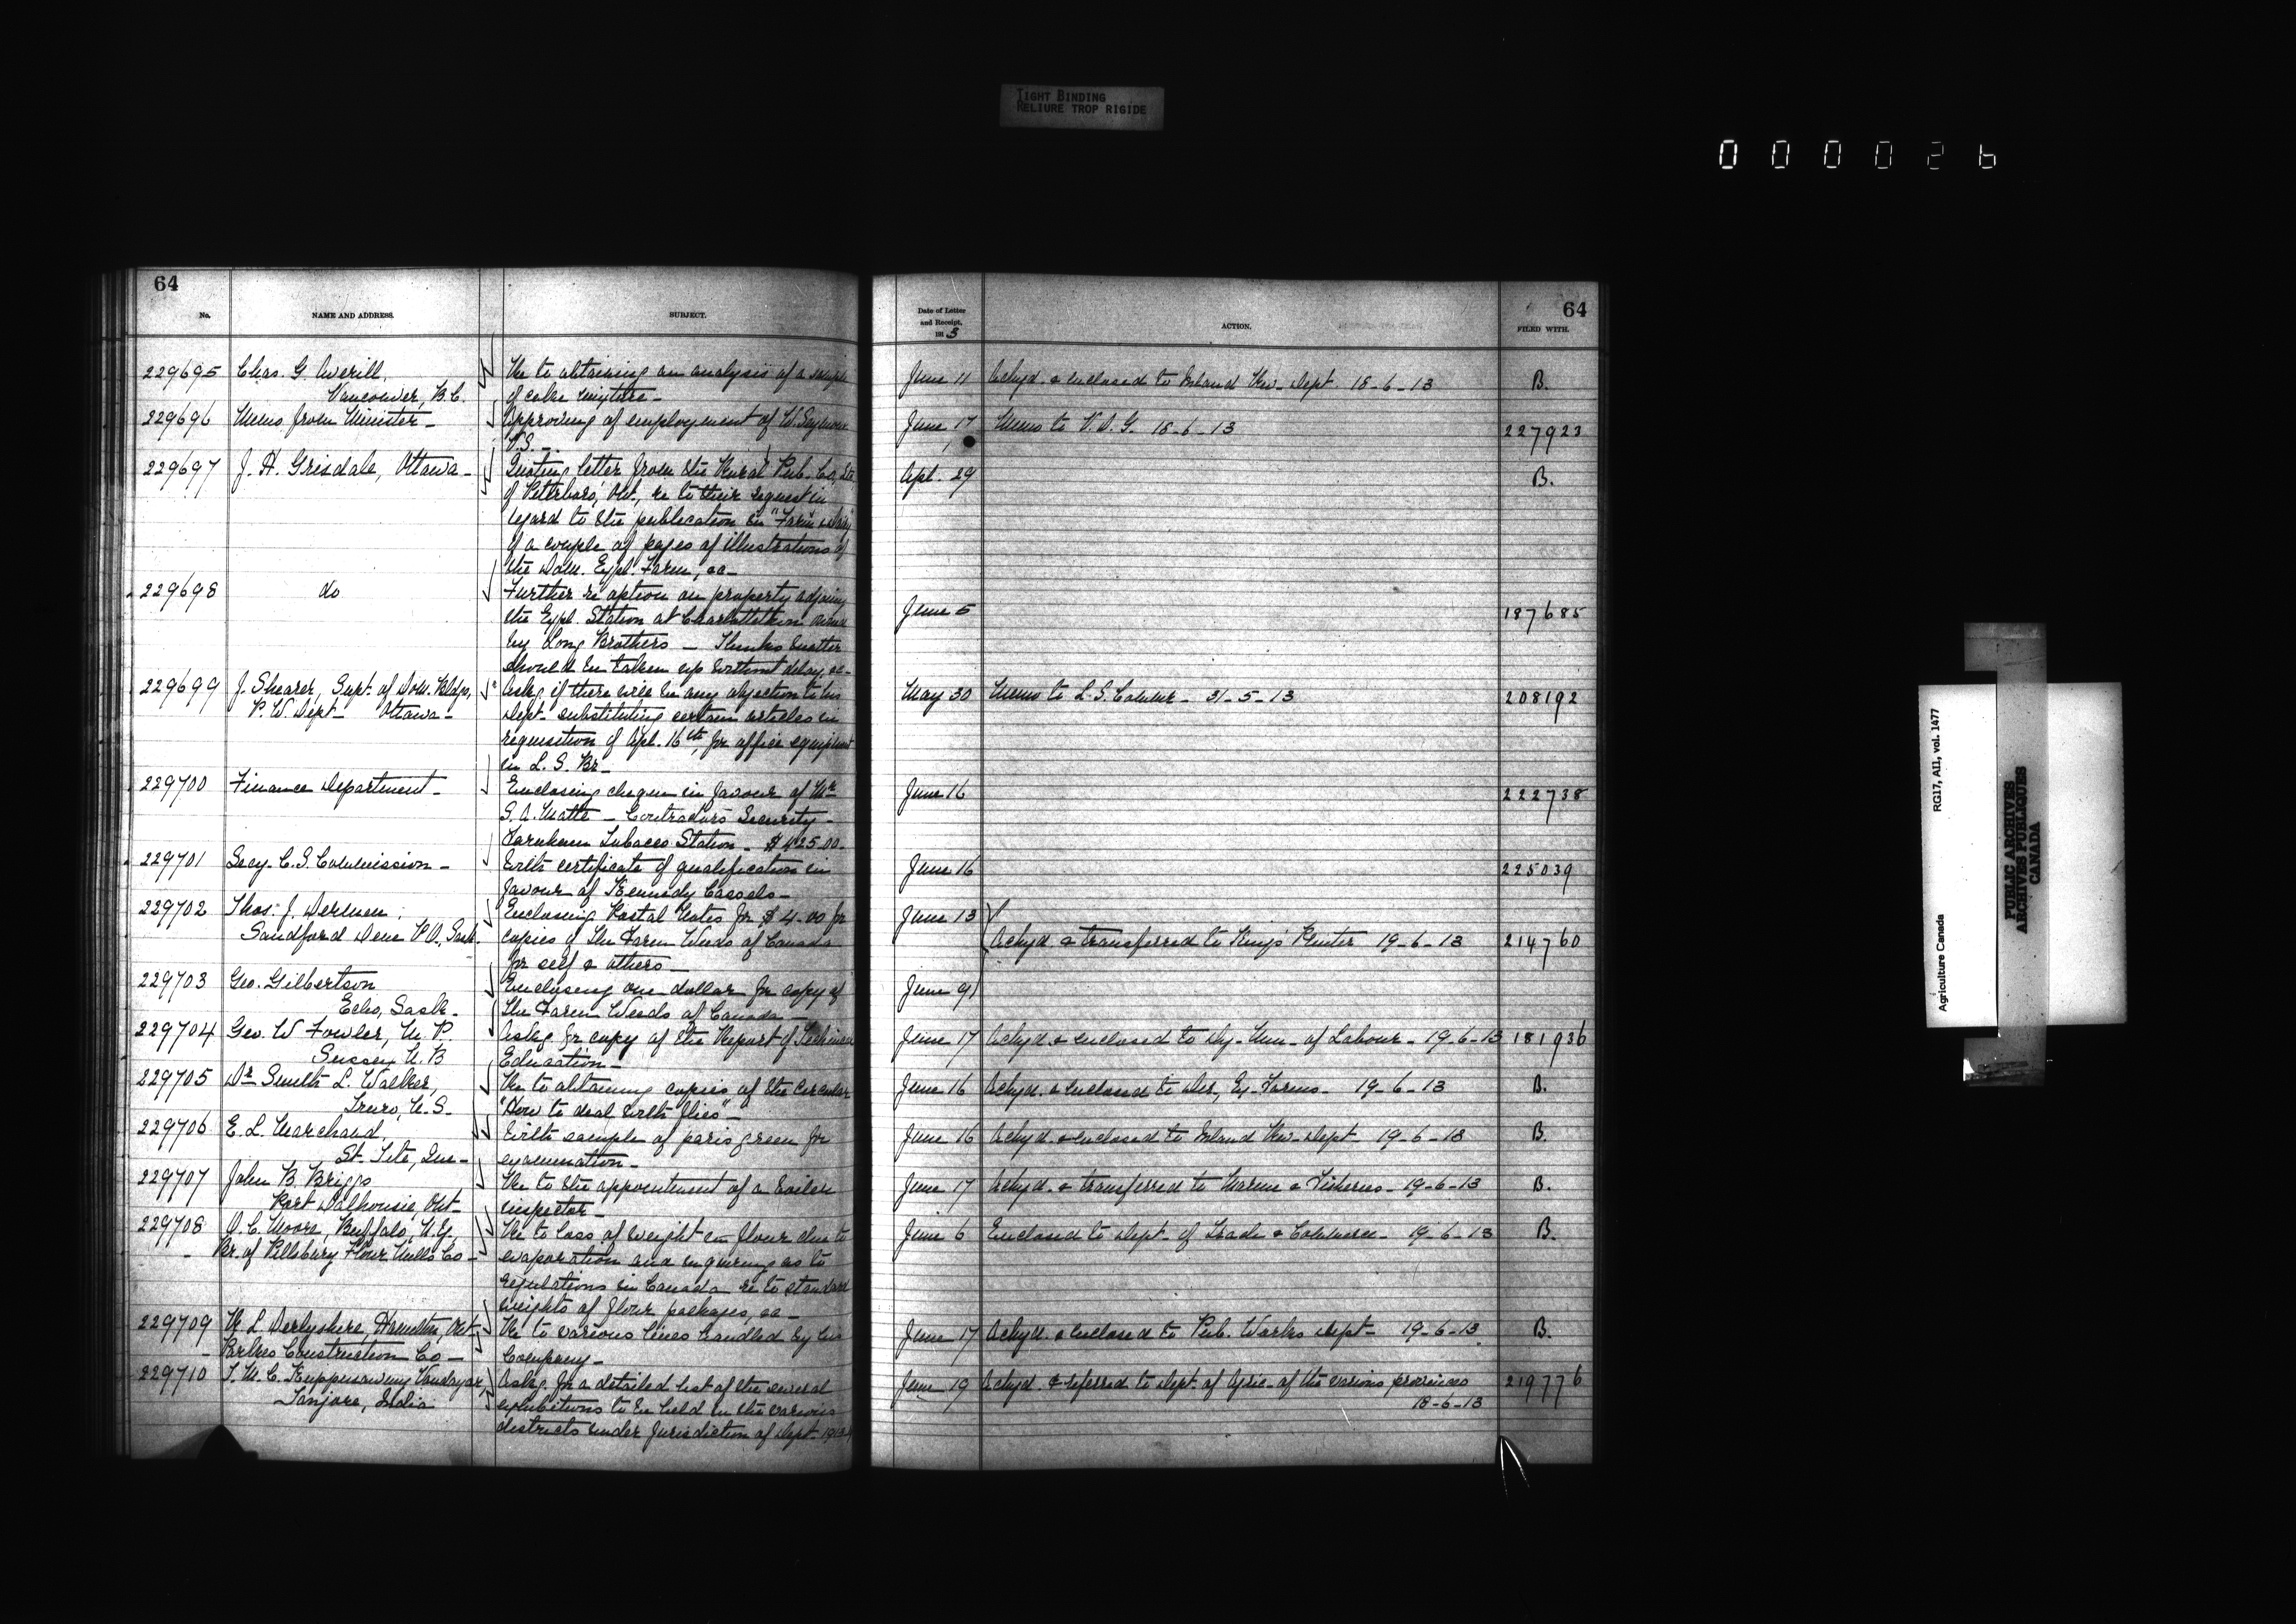 TIGHT BINDING
RELIURE TROP RIGIDE
000026
64
No. NAME AND ADDRESS. SUBJECT.
229695 Chas. G. Averill, Re to obtaining an analysis of a sample
Vancouver, B.C. of cake mixture_
229696 Memo from Minister_ Approving of employment of W. Seymour
V.S._
229697 J. H. Grisdale, Ottawa_ Quoting letter from the Rural Pub. Co., Ltd
of Peterboro, Ont., re to their request in
regard to the publication in "Farm & Dairy
of a couple of pages of illustrations of
the Dom. Expl. Farm, &c_
229698 do Further re option on property adjoing
the Expl. Station at Charlottetown owned
by Long Brothers _ Thinks matter
should be taken up without delay, &c_
229699 J. Shearer, Supt. of Dom. Bldgs, Askg if there will be any objection to his
P. W. Dept_ Ottawa_ Dept. substituting certain articles in
requisition of Apl. 16th, for office equipment
in L. S. Br_
229700 Finance Department_ Enclosing cheque in favour of Mr
S. A. Matte _ Contractors Security_
Farnham Tobacco Station_ $425.00_
229701 Secy. C. S. Commission_ With certificate of qualification in
favour of Kennedy Cassels_
229702 Thos. J. Enclosing Postal Notes for $4.00 for
Sandford Dene P.O., Sask. copies of the Farm Weeds of Canada
for self & others_
229703 Geo. Gilbertson Enclosing one dollar for copy of
Echo, Sask_ the Farm Weeds of Canada_
229704 Geo. W Fowler, M. P. Askg for copy of the Report of Technical
Sussex N. B Education_
229705 Dr Smith L. Walker, Re to obtaining copies of the circular
Truro, N. S_ "How to deal with flies"_
229706 E. L. Marchand, With sample of paris green for
St. Tite, Que_ examination_
229707 John B. Briggs Re to the appointment of a Boiler
Port Dalhousie, Ont_ inspector_
229708 O. C. Moore, Buffalo, N.Y. Re to loss of weight in flour due to
Br. of Pillsbury Flour Mills Co_ evaporation and inquiring as to
regulations in Canada re to standard
weights of flour packages, &c_
229709 Derbyshire, Hamilton, Ont_ Re to various lines handled by his
Construction Co_ Company_
229710 T. M. C. Kuppusawmy Vandayar, Askg. for a detailed list of the several
Tanjore, India exhibitions to be held in the various
districts under jurisdiction of Dept_
64
Date of Letter
and Receipt, ACTION. FILED WITH.
191 3
June 11 Ackgd. & enclosed to Inland Rev_ Dept. 18-6-13 B.
June 17 Memo to V. D. G. 18-6-13 227923
Apl. 29 B.
June 5 187685
May 30 Memo to L. S. Commr_ 31-5-13 208192
June 16 222738
June 16 225039
June 13
Ackgd. & transferred to King's Printer 19-6-13 214760
June 9
June 17 Ackgd. & enclosed to Dy. Min_ of Labour_ 19-6-13 181936
June 16 Ackgd. & enclosed to Dir, Ex. Farms_ 19-6-13 B.
June 16 Ackgd. & enclosed to Inland Rev_ Dept_ 19-6-13 B.
June 17 Ackgd. & transferred to Marine & Fisheries_ 19-6-13 B.
June 6 Enclosed to Dept_ of Trade & Commerce_ 19-6-13 B.
June 17 Ackgd. & enclosed to Pub. Works Dept_ 19-6-13 B.
June 19 Ackgd. & referred to Dept. of Agric_ of the various provinces 219776
18-6-13
Agriculture Canada RG17, AII, vol. 1477
PUBLIC ARCHIVES
ARCHIVES PUBLIQUES
CANADA